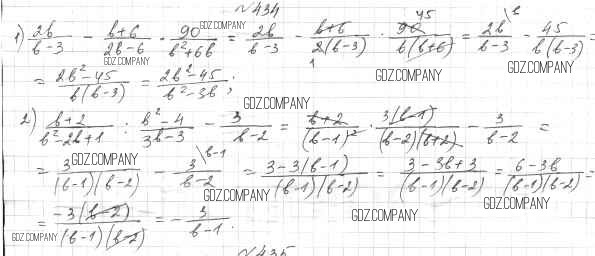 №434
1) 2b/(b-3) - (b+6)/(2b-6) · 90/(b²+6b) = 2b/(b-3) - (b+6)/(2(b-3)) · 90 45/(b(b+6)) = 2b \b/(b-3) - 45/(b(b-3)) =
= (2b²-45)/(b(b-3)) = (2b²-45)/(b²-3b);
2) (b+2)/(b²-2b+1) : (b²-4)/(3b-3) - 3/(b-2) = (b+2)/(b-1)² · 3(b-1)/((b-2)(b+2)) - 3/(b-2) =
= 3/((b-1)(b-2)) - 3 \b-1/(b-2) = (3-3(b-1))/((b-1)(b-2)) = (3-3b+3)/((b-1)(b-2)) = (6-3b)/((b-1)(b-2)) =
= -3(b-2)/((b-1)(b-2)) = -3/(b-1).
№435
GDZ.COMPANY
GDZ.COMPANY
GDZ.COMPANY
GDZ.COMPANY
GDZ.COMPANY
GDZ.COMPANY
GDZ.COMPANY
GDZ.COMPANY
GDZ.COMPANY
GDZ.COMPANY